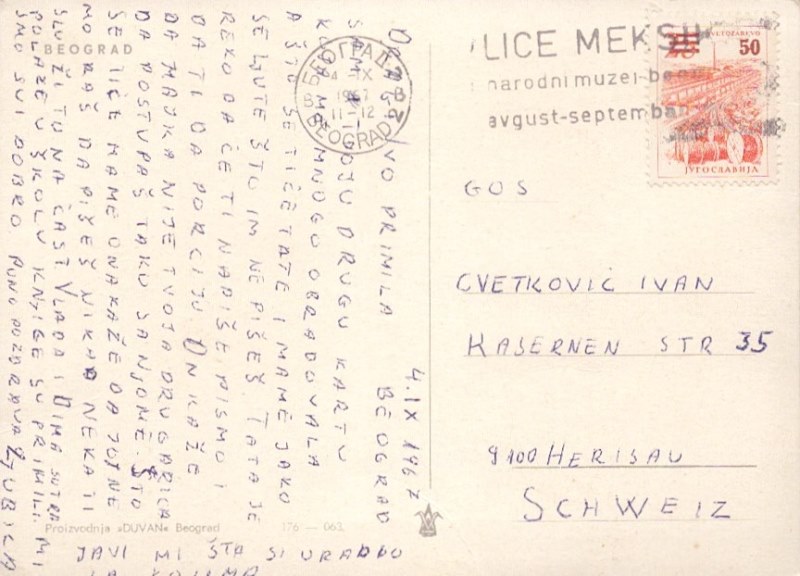 BEOGRAD
4.IX 1967
BEOGRAD
DRAGI IVO PRIMILA
SAM TVOJU DRUGU KARTU
KOJA ME MNOGO OBRADOVALA
A ŠTO SE TIČE TATE I MAME JAKO
SE LJUTE ŠTO IM NE PIŠEŠ. TATA JE
REKO DA ĆE TI NAPIŠE PISMO I
DA TI DA PORCIJU. ON KAŽE
DA MAJKA NIJE TVOJA DRUGARICA
DA POSTUPAŠ TAKO SANJOME. ŠTO
SE TIČE MAME ONA KAŽE DA JOJ NE
MORAŠ DA PIŠEŠ NIKAD NEKA TI
SLUŽI TO NA ČAST VLADA I DIMA SUTRA
POLAZE U ŠKOLU KNJIGE SU PRIMILI. MI
SMO SVI DOBRO. PUNO POZDRAVA LJUBICA
JAVI MI ŠTA SI URADIO
KOLIMA
Proizvodnja »DUVAN« Beograd
176 — 063
БЕОГРАД 2
IX 1967
11-12
BEOGRAD 2
LICE MEKSI
narodni muzej-beog
avgust-septembar
50
JУГОСЛАВИЈА
GOS
CVETKOVIĆ IVAN
KASERNEN STR 35
9100 HERISAU
SCHWEIZ